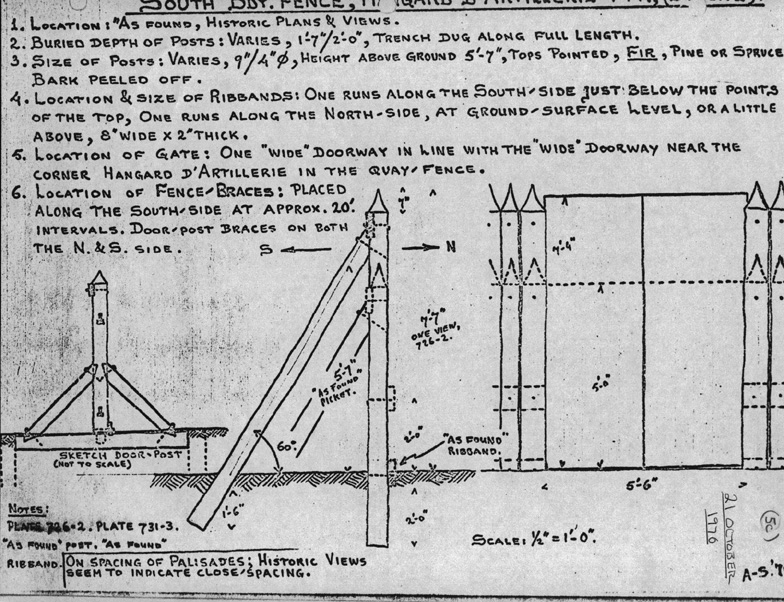 SOUTH BDY. FENCE,
1. LOCATION: "AS FOUND, HISTORIC PLANS & VIEWS.
2. BURIED DEPTH OF POSTS: VARIES, 1'-7"/2'-0", TRENCH DUG ALONG FULL LENGTH.
3. SIZE OF POSTS: VARIES, 9"/4"Ø, HEIGHT ABOVE GROUND 5'-7", TOPS POINTED, FIR, PINE OR SPRUCE
BARK PEELED OFF.
4. LOCATION & SIZE OF RIBBANDS: ONE RUNS ALONG THE SOUTH-SIDE JUST BELOW THE POINTS
OF THE TOP, ONE RUNS ALONG THE NORTH-SIDE, AT GROUND-SURFACE LEVEL, OR A LITTLE
ABOVE, 8" WIDE X 2" THICK.
5. LOCATION OF GATE: ONE "WIDE" DOORWAY IN LINE WITH THE "WIDE" DOORWAY NEAR THE
CORNER HANGARD D'ARTILLERIE IN THE QUAY-FENCE.
6. LOCATION OF FENCE-BRACES: PLACED
ALONG THE SOUTH-SIDE AT APPROX. 20'
INTERVALS. DOOR-POST BRACES ON BOTH
THE N. & S. SIDE.
S N
7"
7'-7"
ONE VIEW,
726-2.
5'-7"
"AS FOUND"
PICKET.
60°
2'-0"
"AS FOUND"
RIBBAND.
1'-6"
2'-0"
7'-4"
5'-0"
5'-6"
SKETCH DOOR-POST
(NOT TO SCALE)
SCALE: 1/2" = 1'-0".
NOTES:
PLATE 726-2. PLATE 731-3.
"AS FOUND" POST. "AS FOUND"
RIBBAND. ON SPACING OF PALISADES; HISTORIC VIEWS
SEEM TO INDICATE CLOSE SPACING.
21 OCTOBER
1976
A-5